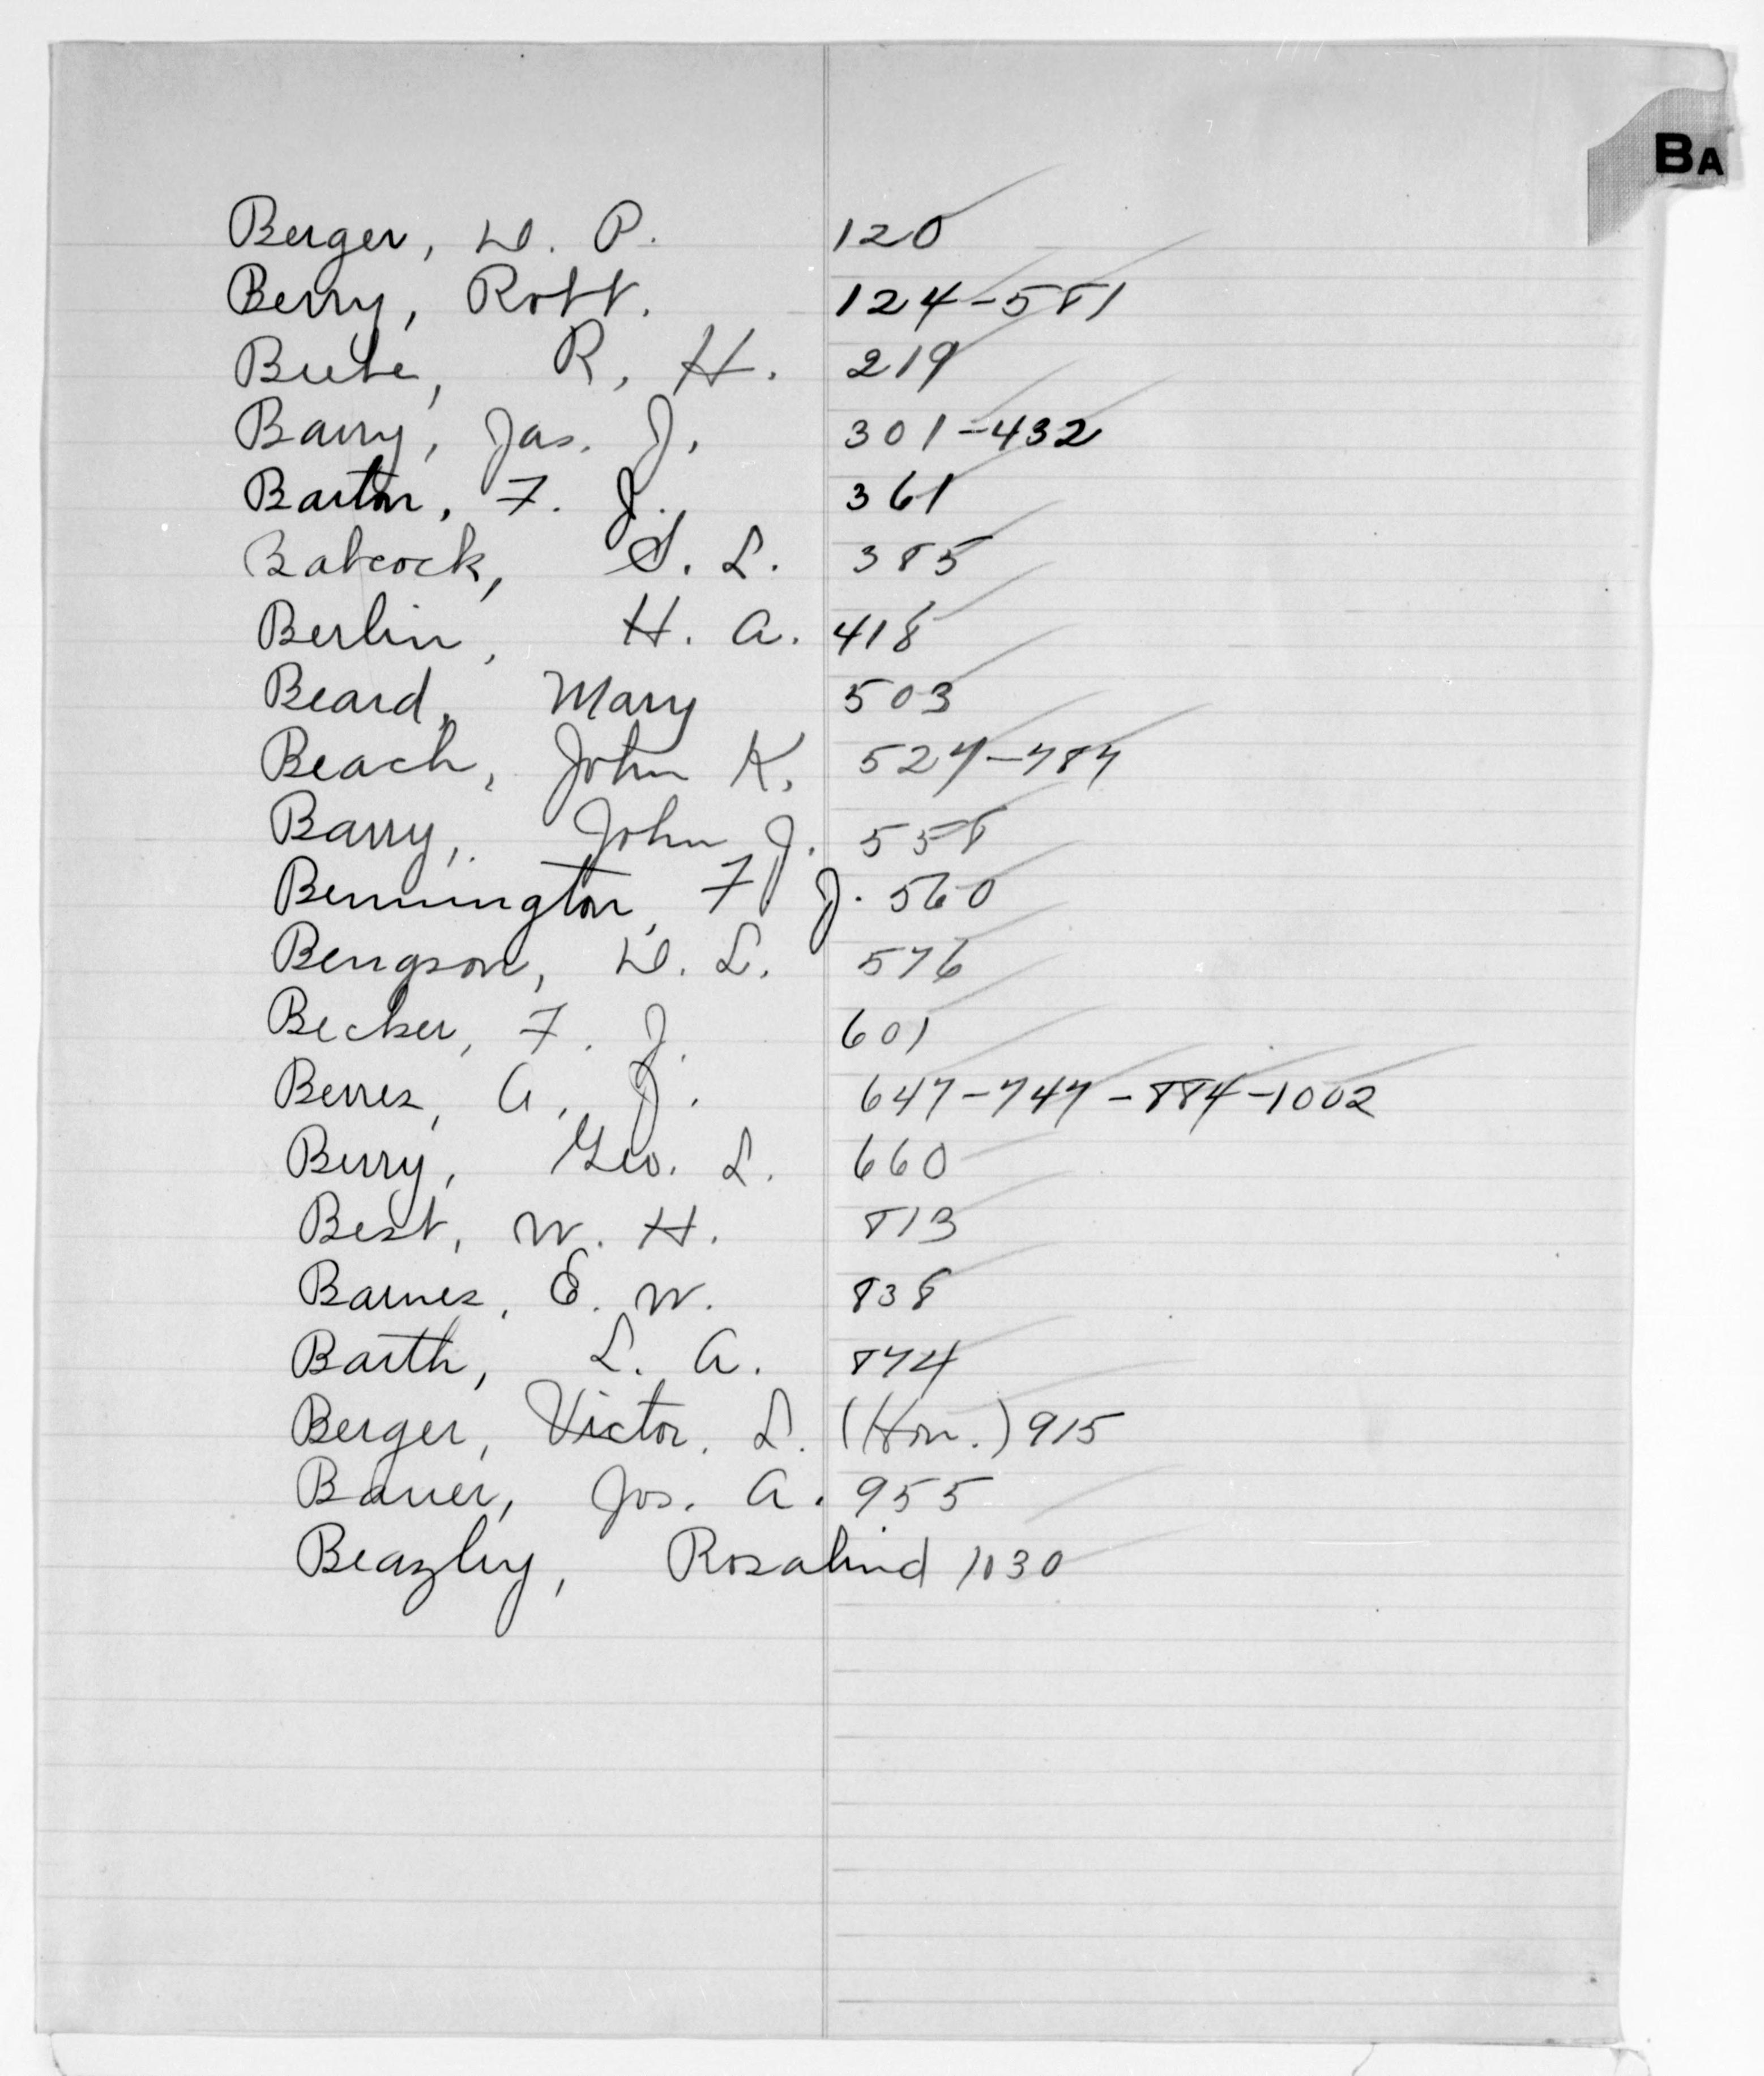 BA
Berger, D. P. 120
Berry, Robt. 124-581
Beebe, R. H. 219
Barry, Jas. J. 301-432
Barton, F. J. 361
Babcock, S. L. 385
Berlin, H. A. 418
Beard, Mary 503
Beach, John K. 527-787
Barry, John J. 558
Bennington, F J. 560
Bengson, D. L. 576
Becker, F. J. 601
Berres, A. J. 647-747-884-1002
Berry, Geo. L. 660
Best, W. H. 813
Barnes, E. W. 838
Barth, L. A. 874
Berger, Victor. L. (Hon.) 915
Bauer, Jos. A. 955
Beazley, Rosalind 1030